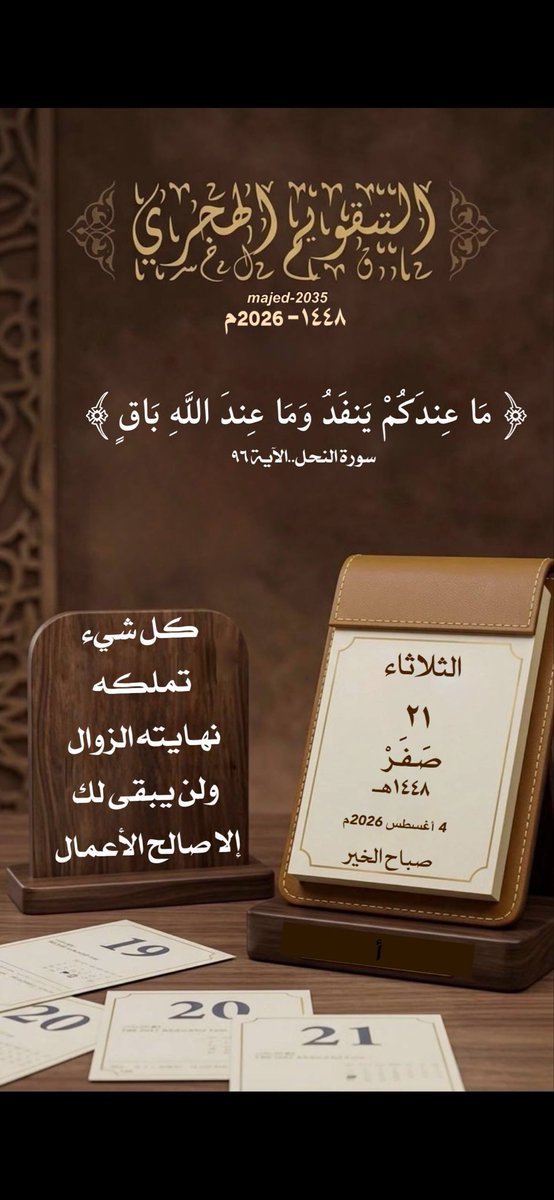 التقويم الهجري
majed-2035
١٤٤٨-2026م
﴿ مَا عِندَكُمْ يَنفَدُ وَمَا عِندَ اللَّهِ بَاقٍ ﴾
سورة النحل..الآية ٩٦
كل شيء
تملكه
نهايته الزوال
ولن يبقى لك
إلا صالح الأعمال
الثلاثاء
٢١
صَفَرْ
١٤٤٨هـ
4 أغسطس 2026م
صباح الخير
أ
19
20
20
21